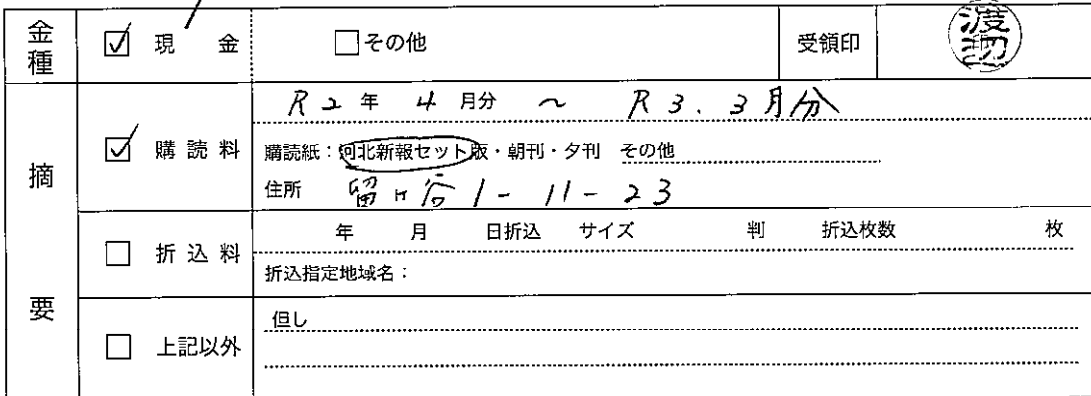 金種 ☑ 現金 □その他 受領印 渡辺
摘要
☑ 購読料
R2年 4月分 ～ R3.3月分
購読紙：河北新報セット版・朝刊・夕刊 その他
住所 留ヶ谷1-11-23
□ 折込料
年 月 日折込 サイズ 判 折込枚数 枚
折込指定地域名：
□ 上記以外
但し